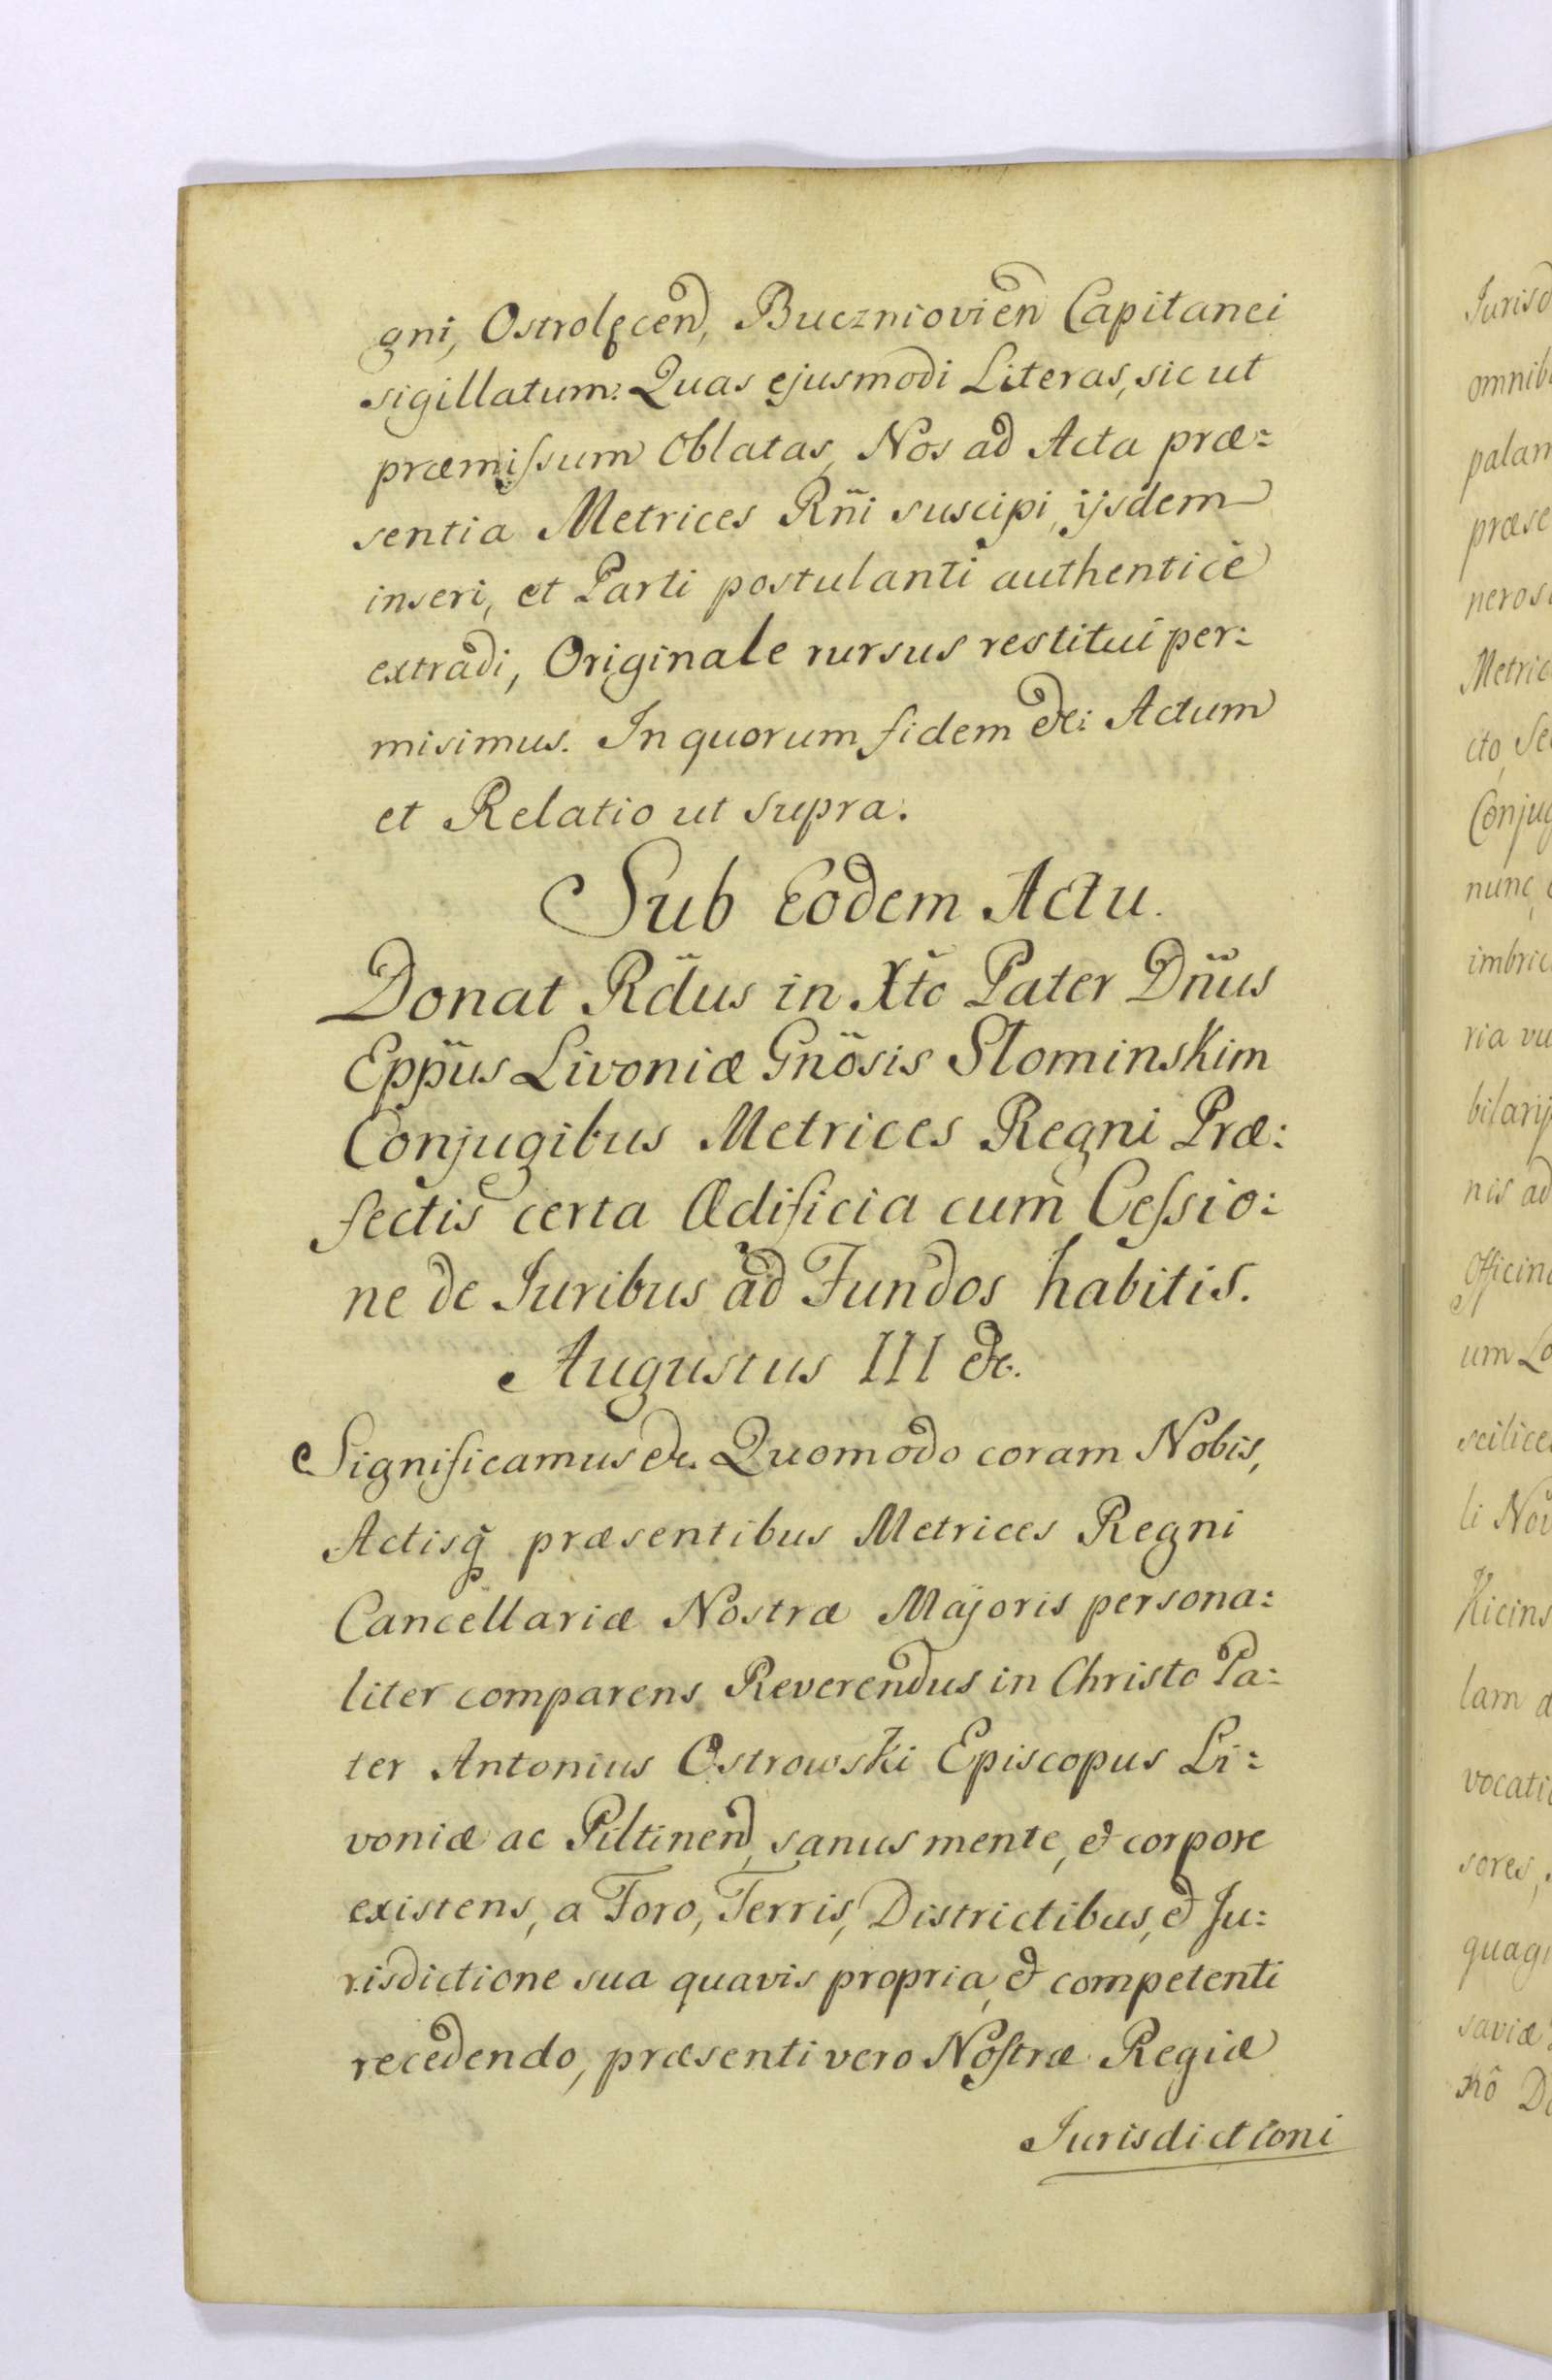 gni, Ostrolęcen, Buczniovien Capitanei
sigillatum: Quas ejusmodi Literas, sic ut
præmiſsum Oblatas, Nos ad Acta præ:
sentia Metrices Rñi suscipi, ijsdem
inseri, et Parti postulanti authenticè
extradi, Originale rursus restitui per:
misimus. In quorum fidem &c: Actum
et Relatio ut supra.
Sub Eodem Actu.
Donat Rdus in Xto Pater Dñus
Eppus Livoniæ Gnosis Słominskim
Conjugibus Metrices Regni Præ:
fectis certa Ædificia cum Ceſsio:
ne de Iuribus ad Fundos habitis.
Augustus III &c.
Significamus &c. Quomodo coram Nobis,
Actisq præsentibus Metrices Regni
Cancellariæ Nostræ Majoris persona:
liter comparens Reverendus in Christo Pa:
ter Antonius Ostrowski Episcopus Li:
voniæ ac Piltinen, sanus mente, & corpore
existens, a Foro, Terris, Districtibus, & Ju:
risdictione sua quavis propria, & competenti
recedendo, præsenti vero Noſtræ Regiæ
Iurisdictioni
Iurisd
omnib
palam
præse
neros
Metric
cto, Se
Conjug
nunc
imbric
ria vu
bilarij
nis ad
Officin
um Lo
scilice
li Nov
Kicins
lam d
vocati
sores,
quag
saviæ
xô D